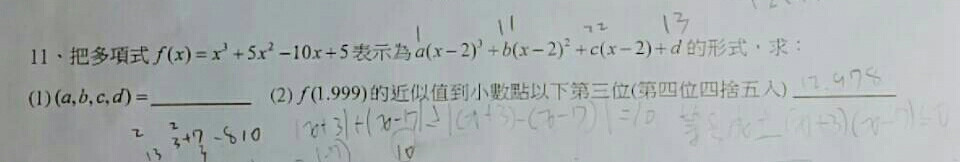 1 11 22 13
11、把多項式 f(x)=x³+5x²-10x+5 表示為 a(x-2)³+b(x-2)²+c(x-2)+d 的形式,求:
(1) (a,b,c,d)=________ (2) f(1.999)的近似值到小數點以下第三位(第四位四捨五入) 12.978
|x+3|+|x-7|≥|(x+3)-(x-7)|=10 (x+3)(x-7)≤0
2 2 3+7 -810
13 3 (-7) 10